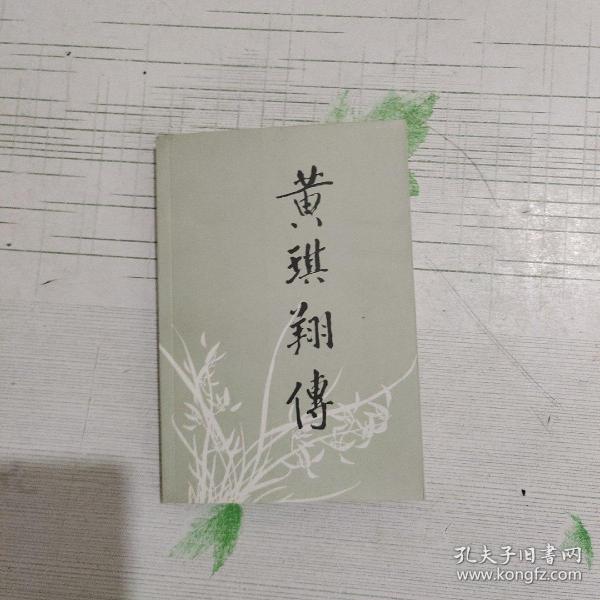 黄琪翔傳
孔夫子旧書网
www.kongfz.com